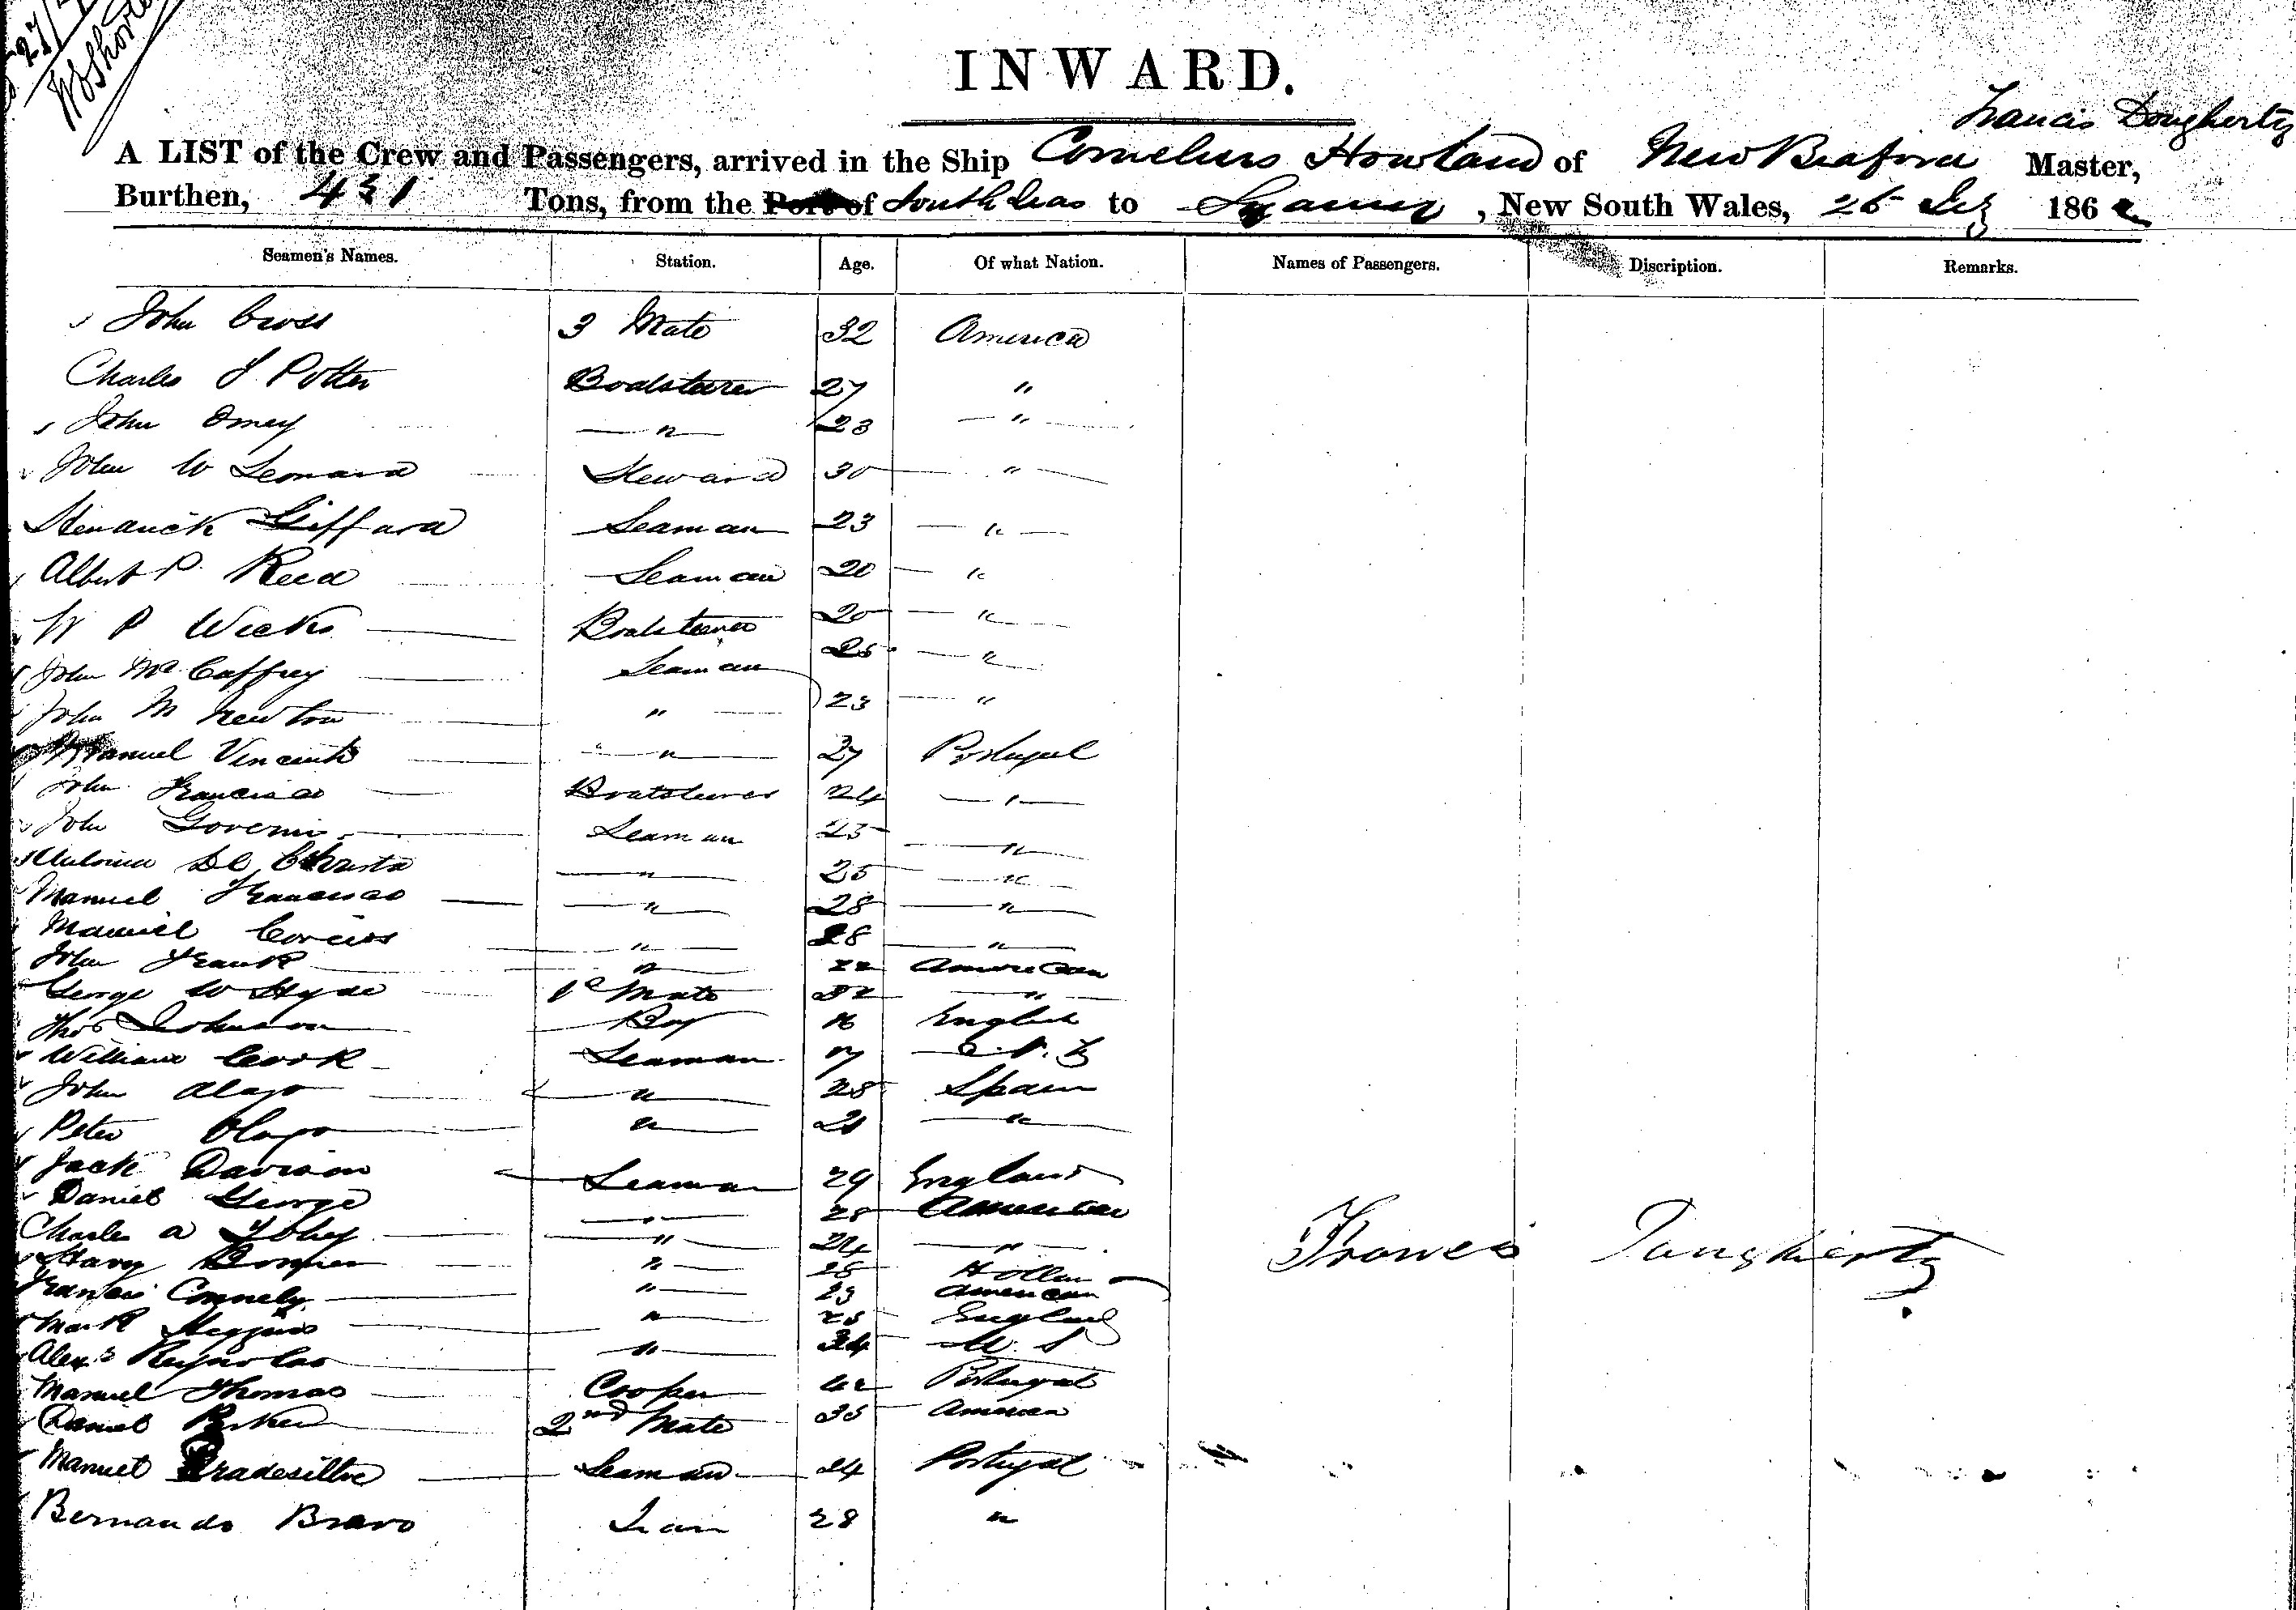 INWARD.
Francis Dougherty
A LIST of the Crew and Passengers, arrived in the Ship Cornelius Howland of New Bedford Master,
Burthen, 431 Tons, from the Port of South Seas to Sydney, New South Wales, 26 186
Seamen's Names. Station. Age. Of what Nation. Names of Passengers. Discription. Remarks.
John Cross 3 Mate 32 America
Charles J Potter Boatsteerer 27 "
John Omey " 23 "
John W Leonard Steward 30 "
Hendrick Gifford Seaman 23 "
Albert P. Reed Seaman 20 "
W P Weeks Boatsteerer 20 "
John McCaffrey Seaman 25 "
John M Newton " 23 "
Manuel Vincent " 27 Portugal
John Francisco Boatsteerer 24 "
John Seaman 23 "
De " 25 "
Manuel Francisco " 28 "
Manuel " 28 "
John Frank " 22 American
George W Hyde 1st Mate 32 "
Thos Johnson Boy 16 English
William Cook Seaman 17 N. Z
John Alago " 28 Spain
Peter Olago " 21 "
Jack Davison Seaman 29 England
Daniel George " 28 American
Charles A Tobey " 24 "
Harry " 28 Hollan
Francis Connely " 23 American
Mark Higgins " 25 England
Alexr Reynolds " 34 U. S
Manuel Thomas Cooper 42 Portugal
Daniel 2nd Mate 35 America
Manuel Seaman 24 Portugal
Bernando Bravo 28 "
Francis Dougherty